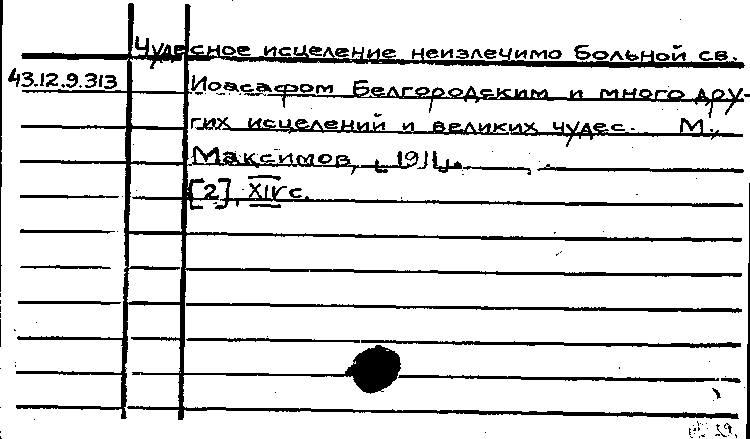 Чудесное исцеление неизлечимо больной св.
43.12.9.313 Иоасафом Белгородским и много дру-
гих исцелений и великих чудес. М.,
Максимов, [1911].
[2], XIV с.